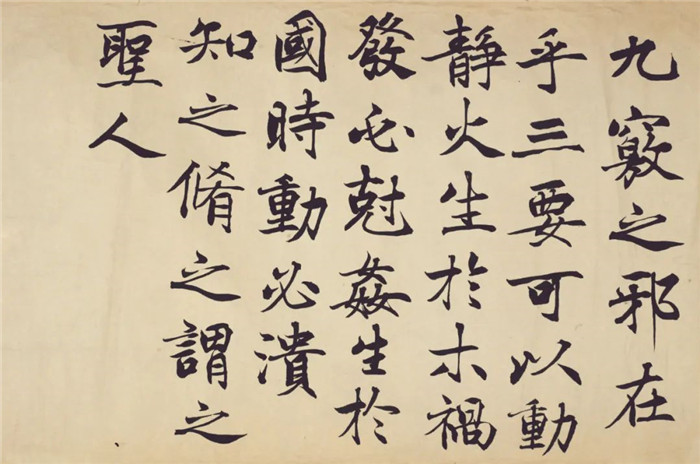 九竅之邪在
乎三要可以動
靜火生於木禍
發必剋姦生於
國時動必潰
知之脩之謂之
聖人